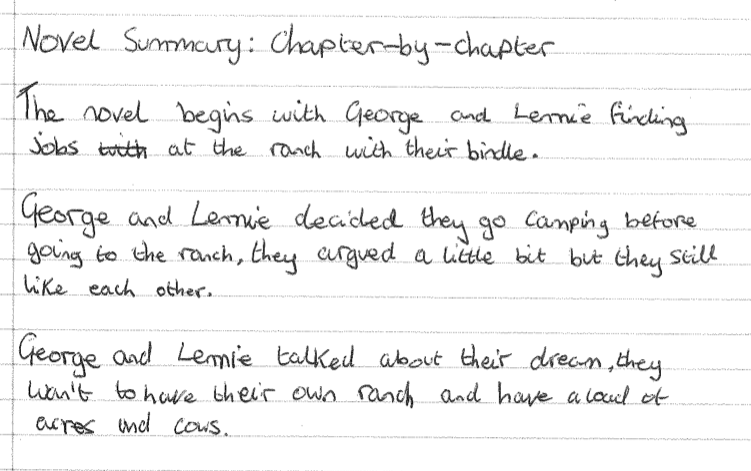 Novel Summary: Chapter-by-chapter
The novel begins with George and Lennie finding
jobs with at the ranch with their bindle.
George and Lennie decided they go camping before
going to the ranch, they argued a little bit but they still
like each other.
George and Lennie talked about their dream, they
won't to have their own ranch and have a load of
acres and cows.